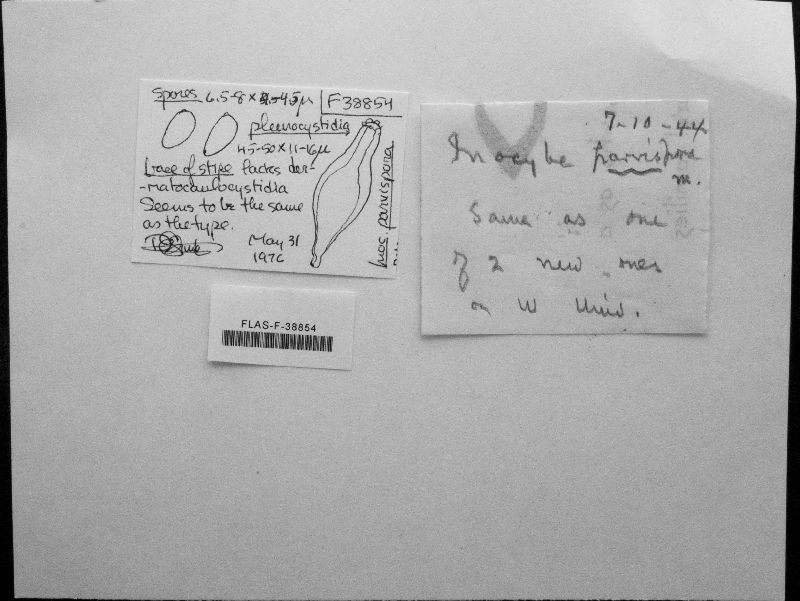 spores 6.5-8 × 4.5µ
F38854
pleurocystidia
45-50×11-16µ
base of stipe lacks der-
-matocaulocystidia
Seems to be the same
as the type.
May 31
1976
Inoc. parvispora
FLAS-F-38854
7-10-44
Inocybe parvispora
m.
Same as one
of 2 new ones
on W Univ.